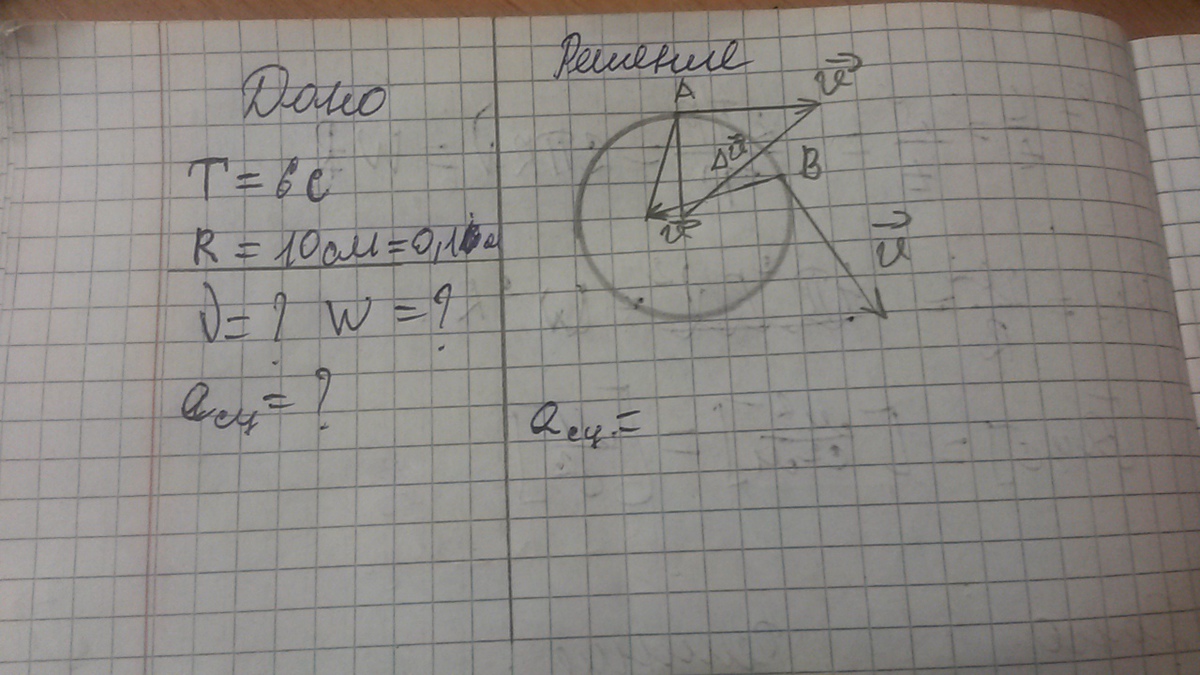 Дано
T = 6 с
R = 10 см = 0,1
ν = ? W = ?
aсц = ?
Решение
A
v⃗
Δv⃗
B
v⃗
v⃗
aсц. =